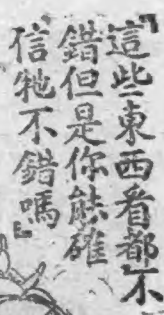 「這些東西看都不
錯但是你能確
信牠不錯嗎」